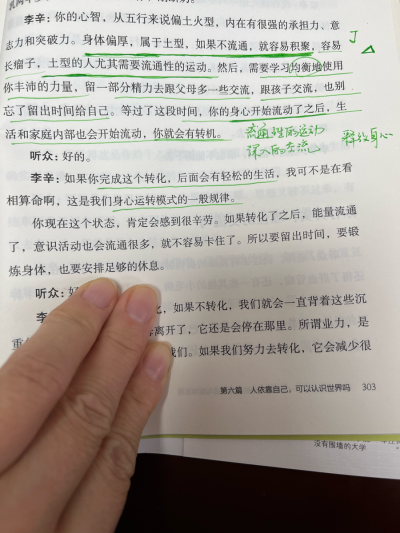 李辛：你的心智，从五行来说偏土火型，内在有很强的承担力、意
志力和突破力。身体偏厚，属于土型，如果不流通，就容易积聚，容易
长瘤子，土型的人尤其需要流通性的运动。然后，需要学习均衡地使用
你丰沛的力量，留一部分精力去跟父母多一些交流，跟孩子交流，也别
忘了留出时间给自己。等过了这段时间，你的身心开始流动了之后，生
活和家庭内部也会开始流动，你就会有转机。
流通性的运动
深入的交流
释放身心
听众：好的。
李辛：如果你完成这个转化，后面会有轻松的生活，我可不是在看
相算命啊，这是我们身心运转模式的一般规律。
你现在这个状态，肯定会感到很辛劳。如果转化了之后，能量流通
了，意识活动也会流通很多，就不容易卡住了。所以要留出时间，要锻
炼身体，也要安排足够的休息。
听众：好
李 化，如果不转化，我们就会一直背着这些沉
重 离开了，它还是会停在那里。所谓业力，是
我们。如果我们努力去转化，它会减少很
第六篇 人依靠自己，可以认识世界吗 303
没有围墙的大学